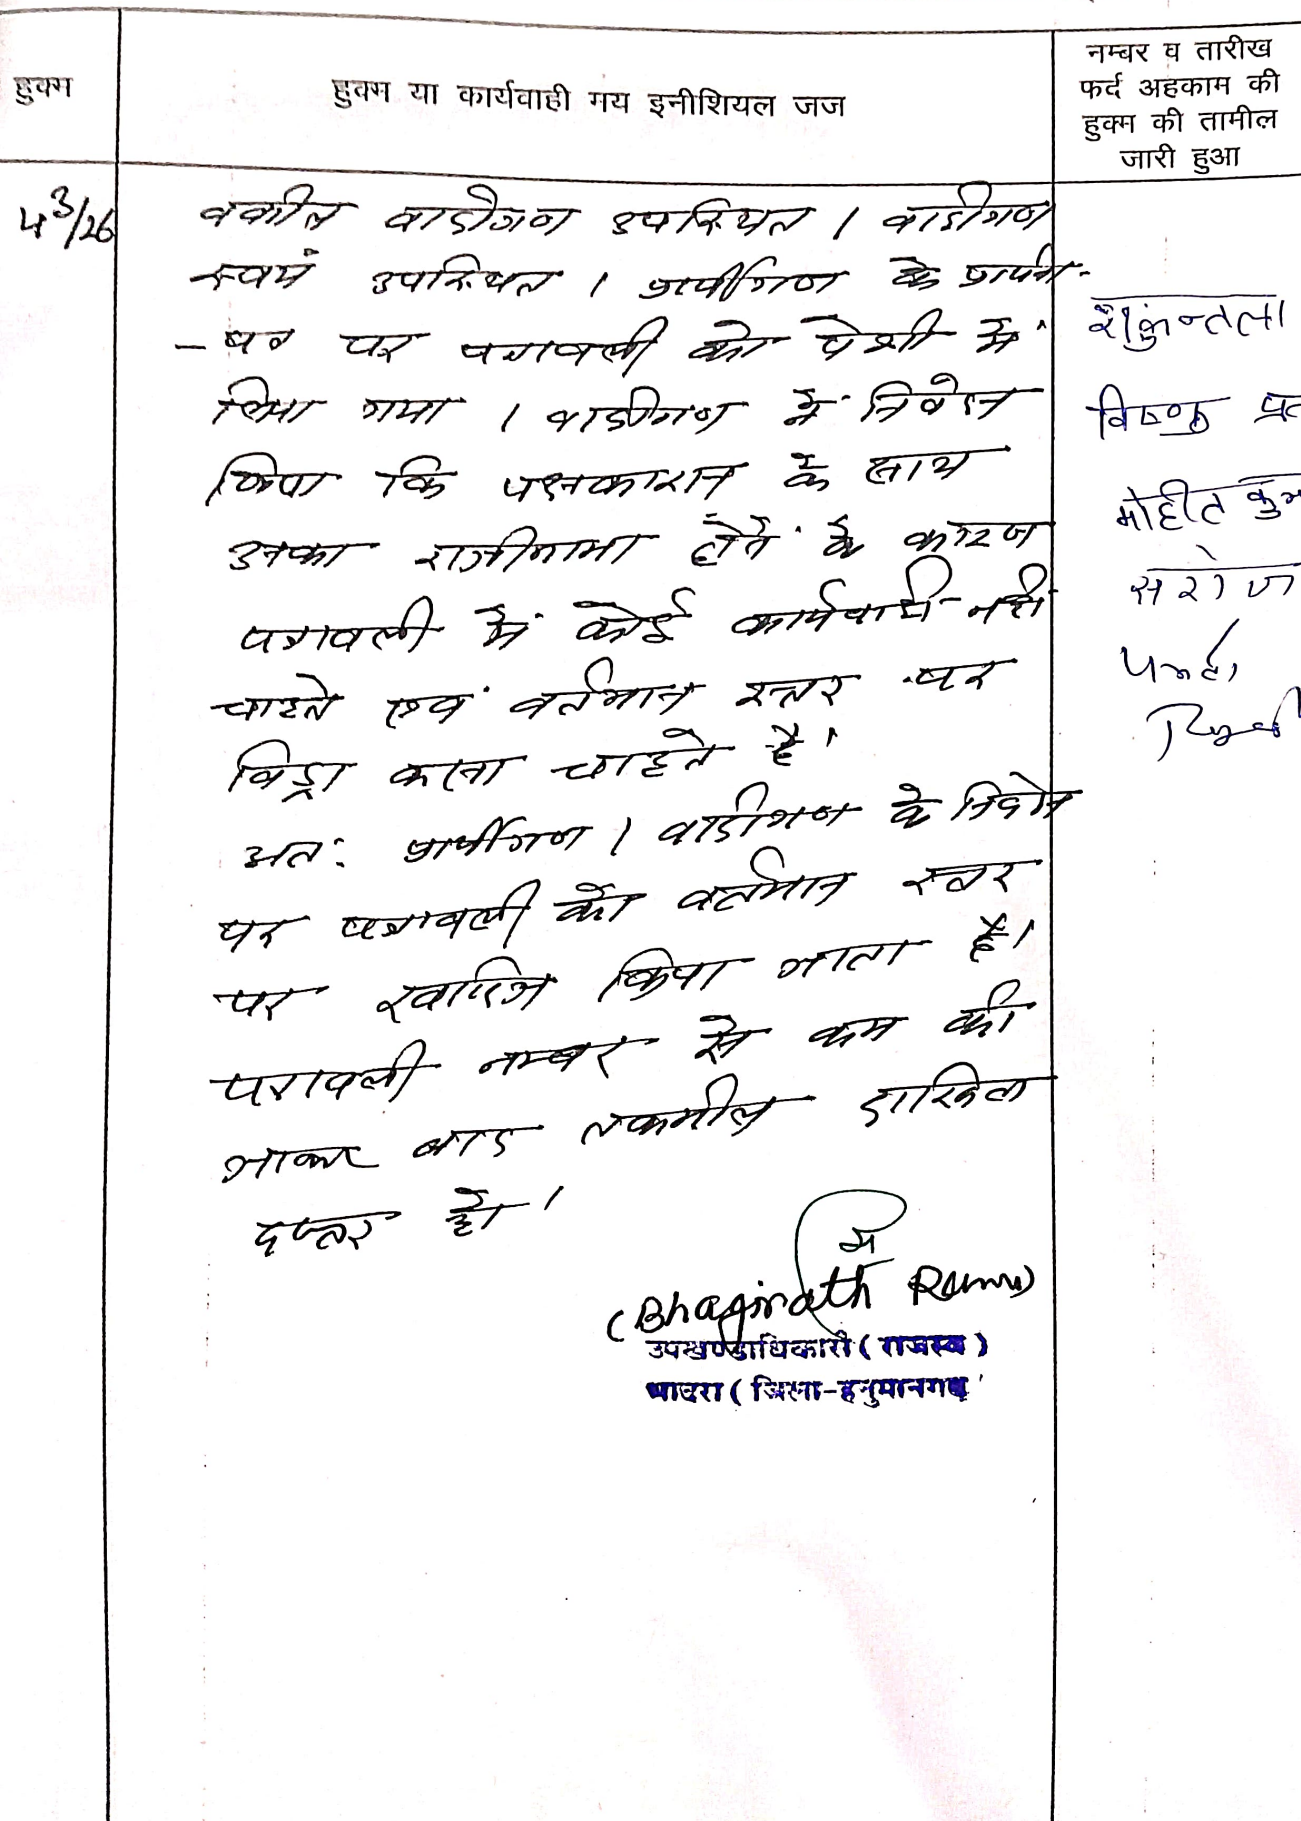 हुक्म
हुक्म या कार्यवाही मय इनीशियल जज
नम्बर व तारीख
फर्द अहकाम की
हुक्म की तामील
जारी हुआ
4 3/26
वकील वादीगण उपस्थित । वादीगण
स्वयं उपस्थित । प्रार्थीगण के प्रार्थना-
- पत्र पर पत्रावली को पेशी में
लिया गया । वादीगण ने निवेदन
किया कि पक्षकारान के साथ
उनका राजीनामा होने के कारण
पत्रावली में कोई कार्यवाही नहीं
चाहते एवं वर्तमान स्तर पर
विड्रा करना चाहते है।
अत: प्रार्थीगण / वादीगण के निवेदन
पर पत्रावली को वर्तमान स्तर
पर खारिज किया जाता है।
पत्रावली नम्बर से कम की
जाकर बाद तकमील दाखिल
दफ्तर हो ।
(Bhagirath Ram)
उपखण्डाधिकारी ( राजस्व )
भादरा ( जिला-हनुमानगढ़
शकुंन्तला
विष्णु प्र
मोहीत कुम
सरोज